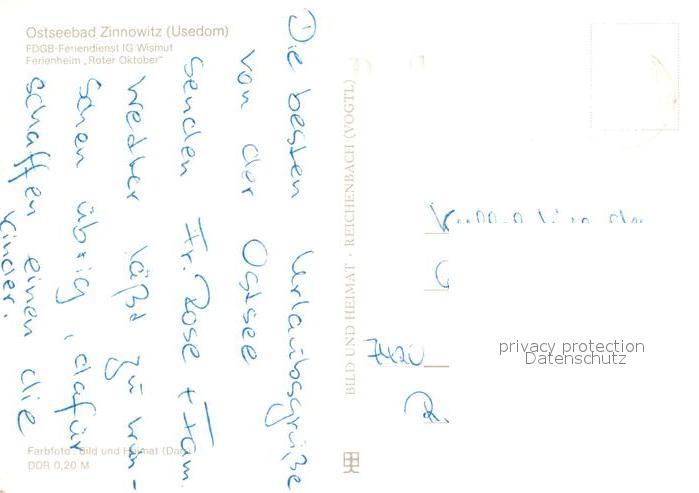 Ostseebad Zinnowitz (Usedom)
FDGB-Feriendienst IG Wismut
Ferienheim „Roter Oktober"
Die besten Urlaubsgrüße
von der Ostsee
senden Fr. Rose + Fam.
Wetter läßt zu wün-
schen übrig, dafür
schaffen einen die
Kinder.
Farbfoto: Bild und Heimat
DDR 0,20 M
BILD UND HEIMAT · REICHENBACH (VOGTL)
privacy protection
Datenschutz